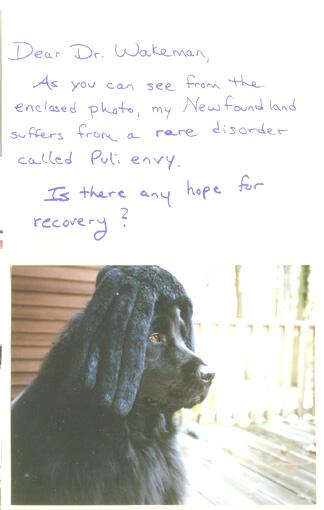 Dear Dr. Wakeman,
As you can see from the
enclosed photo, my Newfoundland
suffers from a rare disorder
called Puli envy.
Is there any hope for
recovery?